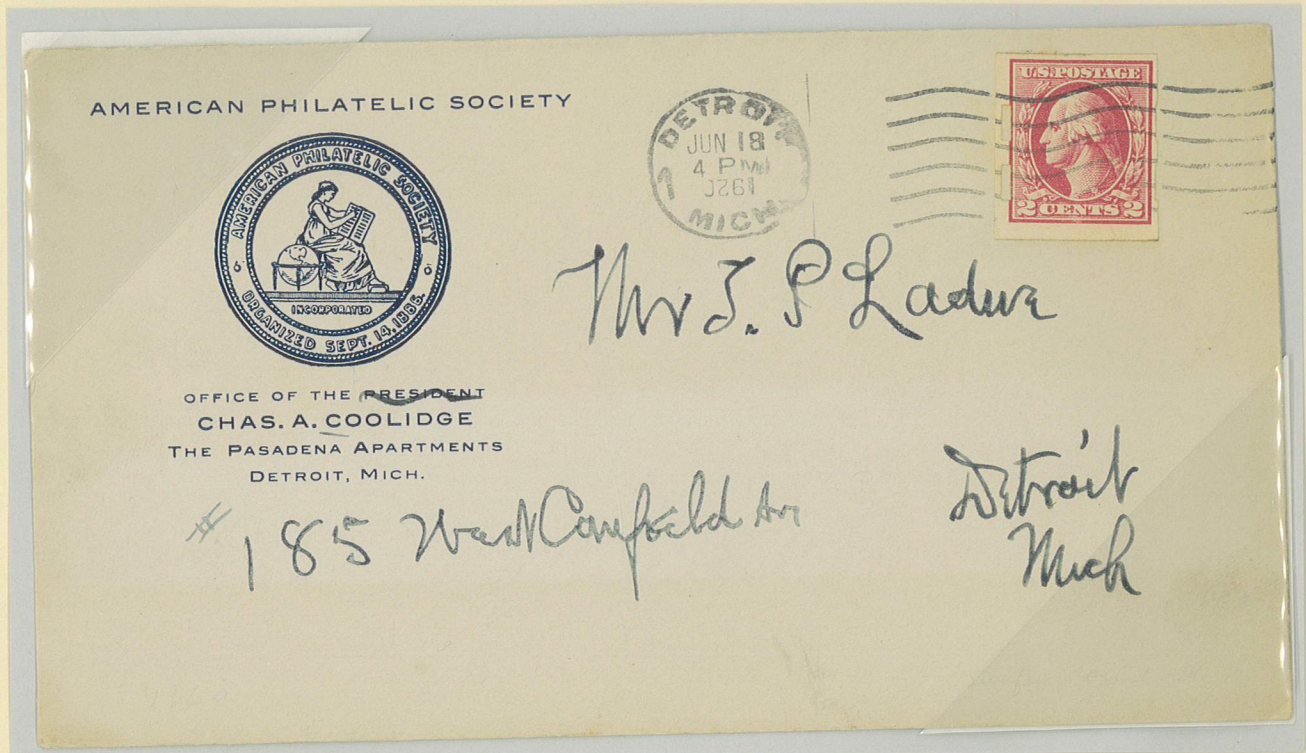 AMERICAN PHILATELIC SOCIETY
AMERICAN PHILATELIC SOCIETY
INCORPORATED
ORGANIZED SEPT. 14, 1886.
OFFICE OF THE PRESIDENT
CHAS. A. COOLIDGE
THE PASADENA APARTMENTS
DETROIT, MICH.
DETROIT
JUN 18
4 PM
MICH.
U.S.POSTAGE
2 CENTS 2
Mr T. P Ladue
# 185 West Canfield Av
Detroit
Mich